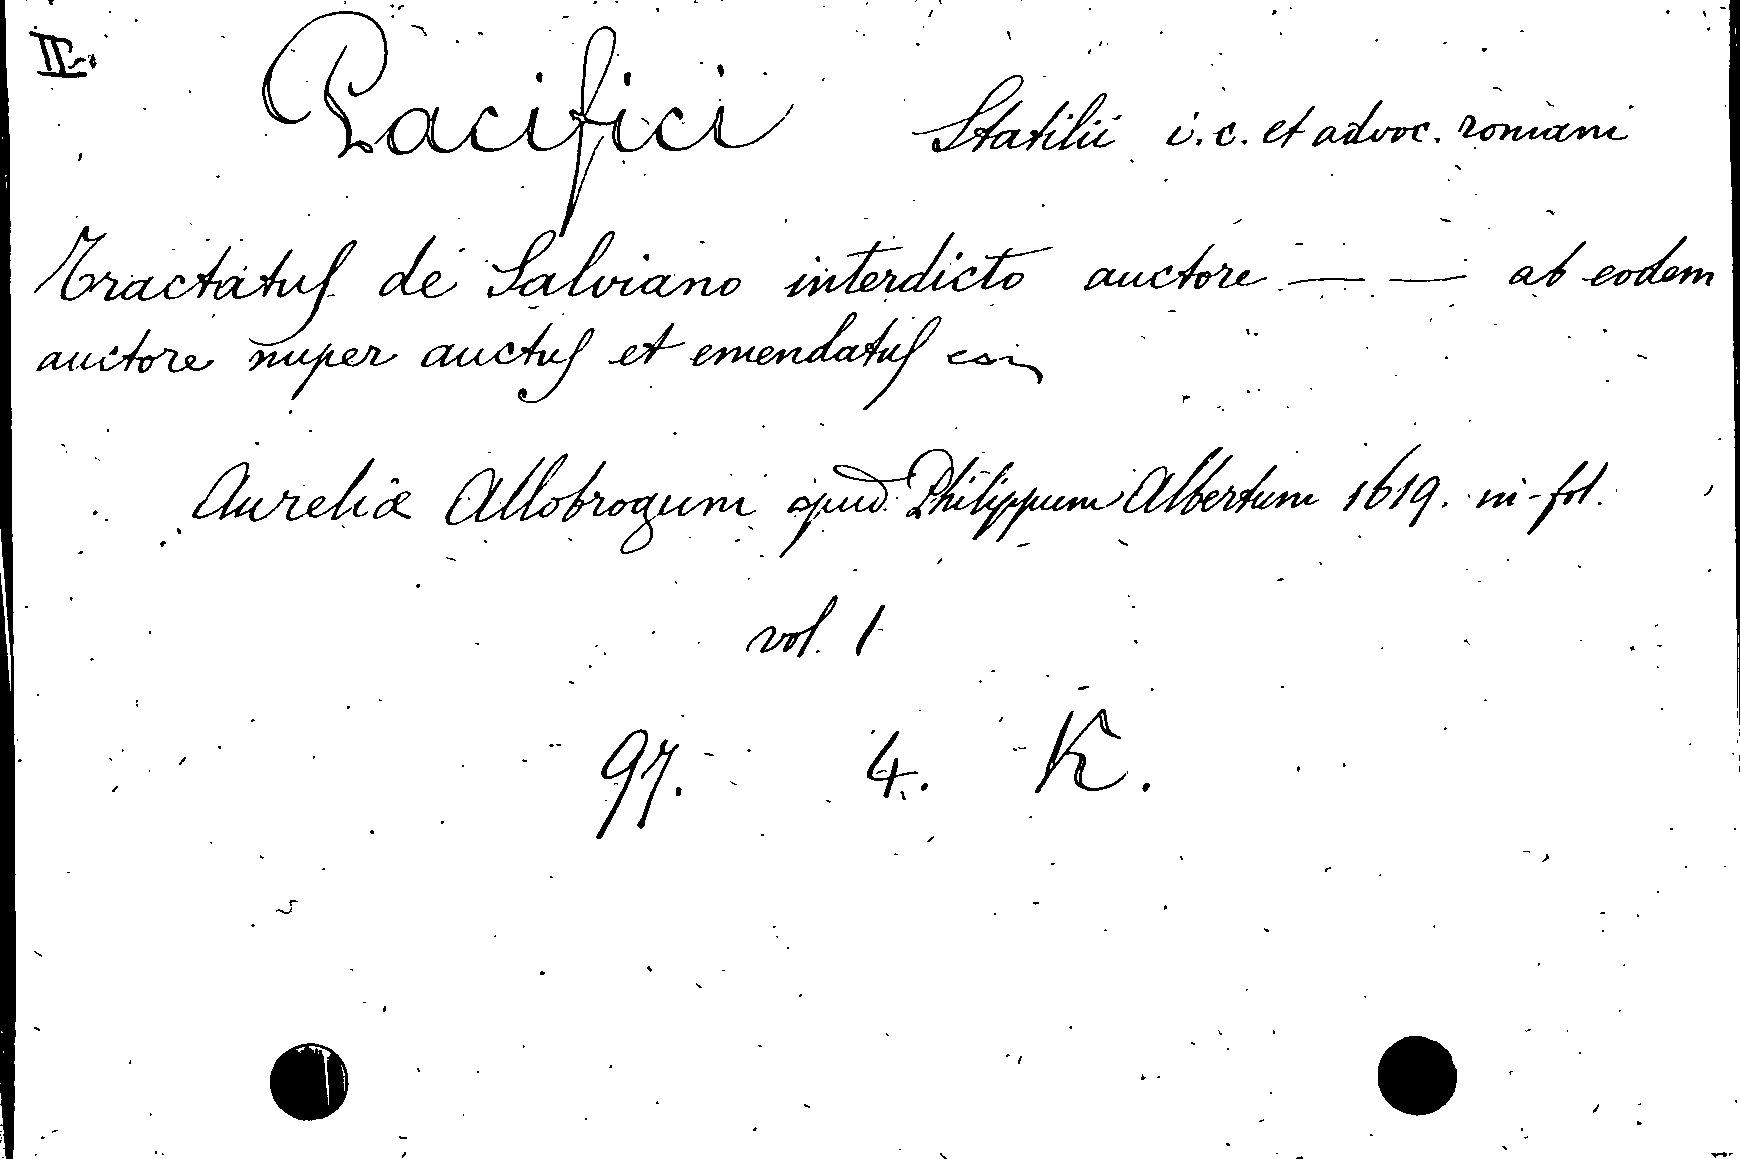 II
Pacifici Statilii i.c. et advoc. romani
Tractatus de Salviano interdicto auctore — — ab eodem
auctore nuper auctus et emendatus
Aureliæ Allobrogum apud Philippum Albertum 1619. in-fol.
vol. 1
97. 4. K.